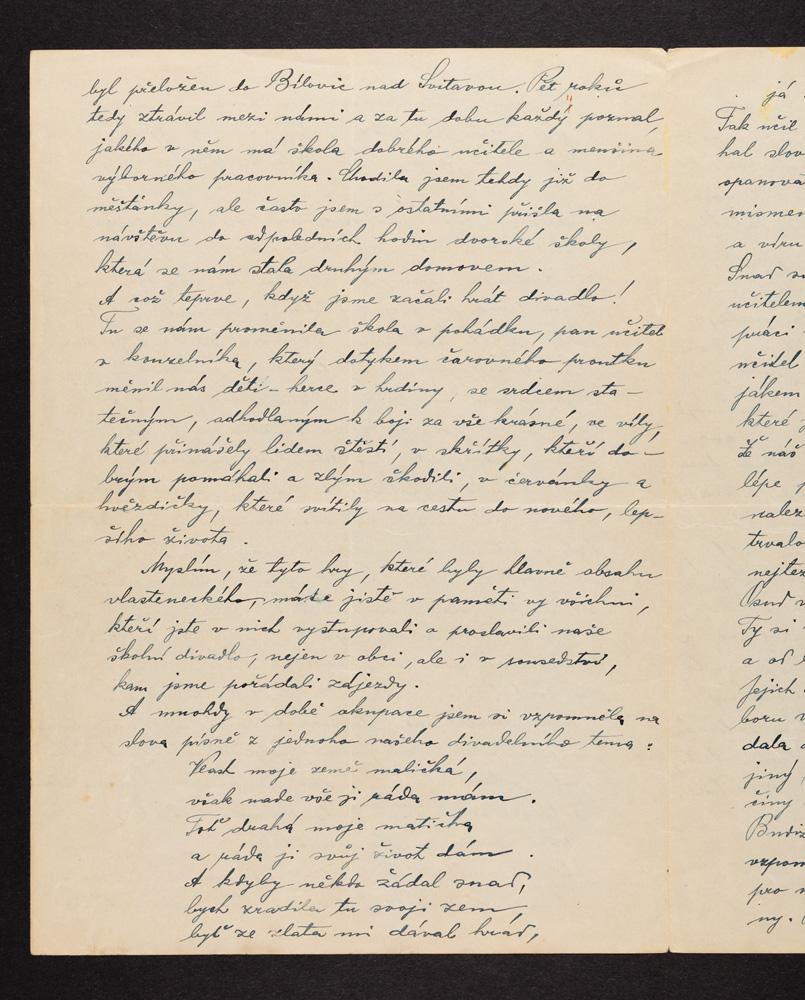 byl přeložen do Bílovic nad Svitavou. Pět roků
tedy ztrávil mezi námi a za tu dobu každý poznal,
jakého v něm má škola dobrého učitele a menšina
výborného pracovníka. Chodila jsem tehdy již do
měšťánky, ale často jsem s ostatními přišla na
návštěvu do odpoledních hodin dvorské školy,
která se nám stala druhým domovem.
A což teprve, když jsme začali hrát divadlo!
Tu se nám proměnila škola v pohádku, pan učitel
v kouzelníka, který dotykem čarovného proutku
měnil nás děti - herce v hrdiny, se srdcem sta-
tečným, odhodlaným k boji za vše krásné, ve víly,
které přinášely lidem štěstí, v skřítky, kteří do-
brým pomáhali a zlým škodili, v červánky a
hvězdičky, které svítily na cestu do nového, lep-
šího života.
Myslím, že tyto hry, které byly hlavně obsahu
vlasteneckého, máte jistě v paměti vy všichni,
kteří jste v nich vystupovali a proslavili naše
školní divadlo, nejen v obci, ale i v sousedství,
kam jsme pořádali zájezdy.
A mnohdy v době okupace jsem si vzpomněla na
slova písně z jednoho našeho divadelního tema:
Vlast moje země maličká,
však nade vše ji ráda mám.
Toť drahá moje matička
a ráda jí svůj život dám.
A kdyby někdo žádal snad,
bych zradila tu svoji zem,
byť ze zlata mi dával hrad,
já
Tak učil
hal slov
opanova
mismen
a víru
Snad s
učitelem
práci
učitel
jákem
které
že náš
lépe
nalez
trvalo
nejtěž
Osud
Ty si
a od
Jejich
boru v
dala
jiný
činy
Budiž
vzpom
pro n
ny.